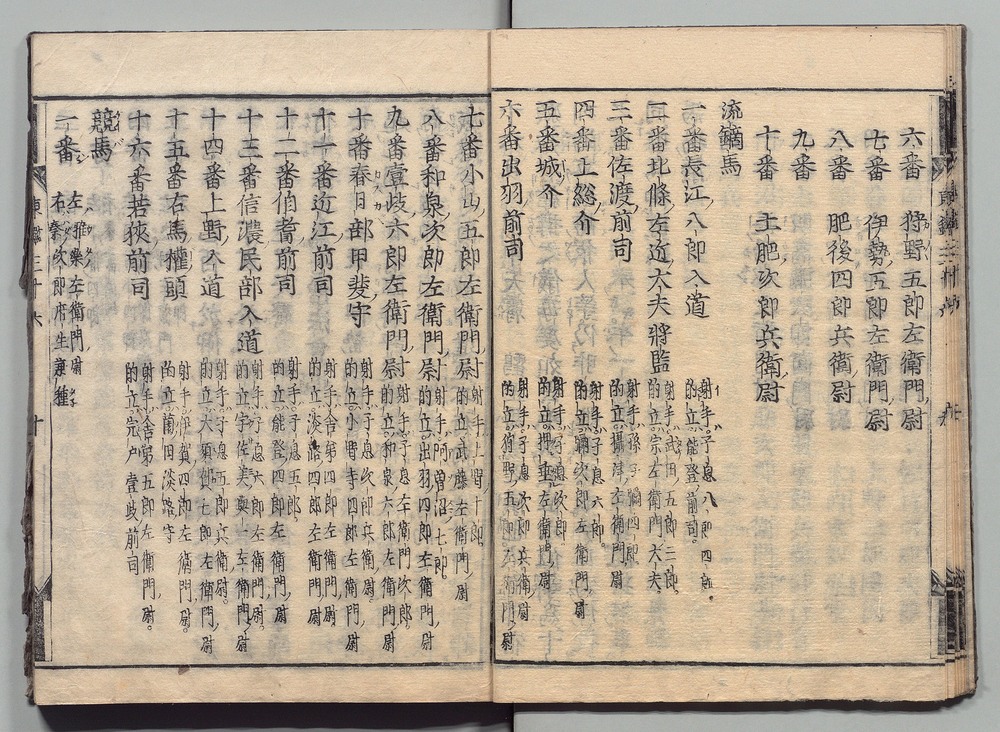 六番 狩野五郎左衛門尉
七番 伊勢五郎左衛門尉
八番 肥後四郎兵衛尉
九番
十番 土肥次郎兵衛尉
流鏑馬
一番長江八郎入道 射手子息八郎四郎
的立能登前司
二番北條左近大夫將監 射手武田五郎三郎
的立宗左衛門大夫
三番佐渡前司 射手孫子弥四郎
的立攝津左衛門尉
四番上総介 射手子息六郎
的立弥次郎左衛門尉
五番城介 射手子息次郎
的立押垂左衛門尉
六番出羽前司 射手子息次郎兵衛尉
的立狩野五郎左衛門尉
七番小山五郎左衛門尉 射手上野十郎
的立武藤左衛門尉
八番和泉次郎左衛門尉 射手阿曽沼七郎
的立出羽四郎左衛門尉
九番壹岐六郎左衛門尉 射手子息左衛門次郎
的立和泉六郎左衛門尉
十番春日部甲斐守 射手子息次郎兵衛尉
的立小野寺四郎左衛門尉
十一番近江前司 射手舎弟四郎左衛門尉
的立淡路四郎左衛門尉
十二番伯耆前司 射手子息五郎
的立能登四郎左衛門尉
十三番信濃民部入道 射手子息六郎左衛門尉
的立宇佐美與一左衛門尉
十四番上野入道 射手子息五郎兵衛尉
的立大須賀七郎左衛門尉
十五番右馬權頭 射手伊賀四郎左衛門尉
的立蘭田淡路守
十六番若狹前司 射手舎弟五郎左衛門尉
的立宍戸壹岐前司
競馬
一番 左
右秦次郎府生兼種
東鑑三十六 十